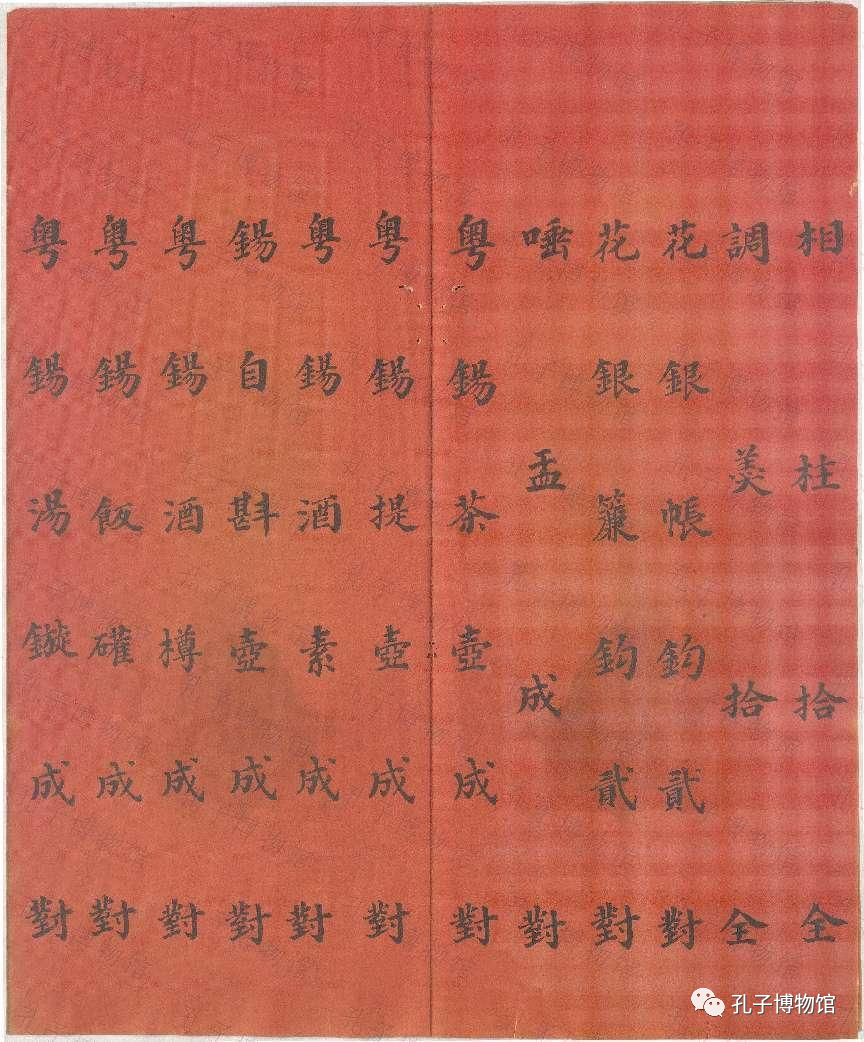 相柱拾全
調羹拾全
花銀帳鈎貳對
花銀簾鈎貳對
唾盂成對
粤錫茶壺成對
粤錫提壺成對
粤錫酒素成對
錫自斟壺成對
粤錫酒樽成對
粤錫飯礶成對
粤錫湯鏇成對
孔子博物馆